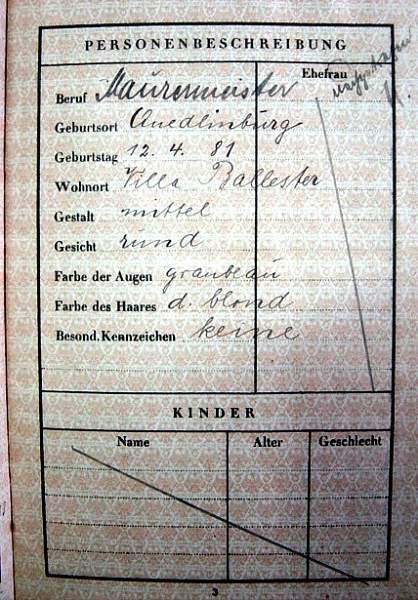 PERSONENBESCHREIBUNG
Ehefrau
Beruf Maurermeister
Geburtsort Quedlinburg
Geburtstag 12. 4. 81
Wohnort Villa Ballester
Gestalt mittel
Gesicht rund
Farbe der Augen graublau
Farbe des Haares d. blond
Besond. Kennzeichen keine
KINDER
Name Alter Geschlecht
3